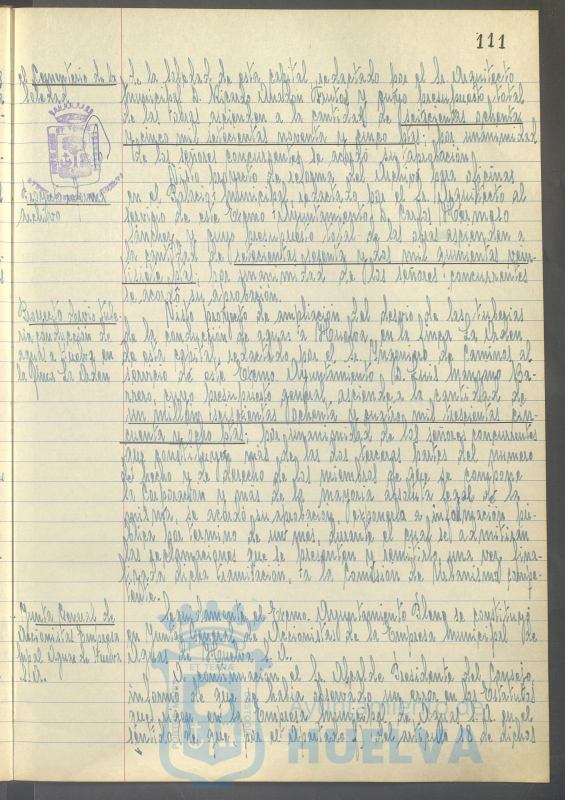 111
el Cementerio de la
Soledad
de la Soledad de esta capital, redactado por el Sr. Arquitecto
municipal D. Ricardo Anadón Frutos y cuyo presupuesto total
de las obras ascienden a la cantidad de seiscientas ochenta
y cinco mil setecientas noventa y cinco ptas; por unanimidad
de los señores concurrentes se acordó su aprobación.
archivo
Visto proyecto de reforma del archivo para oficinas
en el Palacio municipal redactado por el Sr. Arquitecto al
servicio de este Excmo. Ayuntamiento D. Carlos Hermoso
y cuyo presupuesto total de las obras ascienden a
la cantidad de setecientas sesenta y dos mil quinientas vein-
ptas, por unanimidad de los señores concurrentes
se acordó su aprobación.
Proyecto desvio tube-
ria conducción de
aguas a Huelva en
la finca La Orden
Visto proyecto de ampliación del desvio de las tuberias
de la conducción de aguas a Huelva, en la finca La Orden
de esta capital, redactado por el Sr. Ingeniero de Caminos al
servicio de este Excmo. Ayuntamiento D. Luis Manzano Ba-
rrero, cuyo presupuesto general asciende a la cantidad de
un millón seiscientas ochenta y cuatro mil trescientas cin-
cuenta y ocho ptas; por unanimidad de los señores concurrentes
que constituyen más de las dos terceras partes del número
de hecho y de derecho de los miembros de que se compone
la Corporación y más de la mayoria absoluta legal de la
misma, se acordó su aprobación, exponerla a información pú-
blica por término de un mes, durante el cual se admitirán
las reclamaciones que se presenten y remitirlo, una vez fina-
lizada dicha tramitación, a la Comisión de Urbanismo compe-
tente.
Junta General de
Accionistas Empresa
Mpal Aguas de Huelva
S.A.
Seguidamente el Excmo. Ayuntamiento Pleno se constituyó
en Junta General de Accionistas de la Empresa Municipal de
Aguas de Huelva S.A.
A continuación el Sr. Alcalde Presidente del Consejo,
informa de que se habia observado un error en los Estatutos
que rigen en la Empresa Municipal de Aguas S.A. en el
sentido de que por el apartado del artículo 18 de dichos
Ayuntamiento de
HUELVA